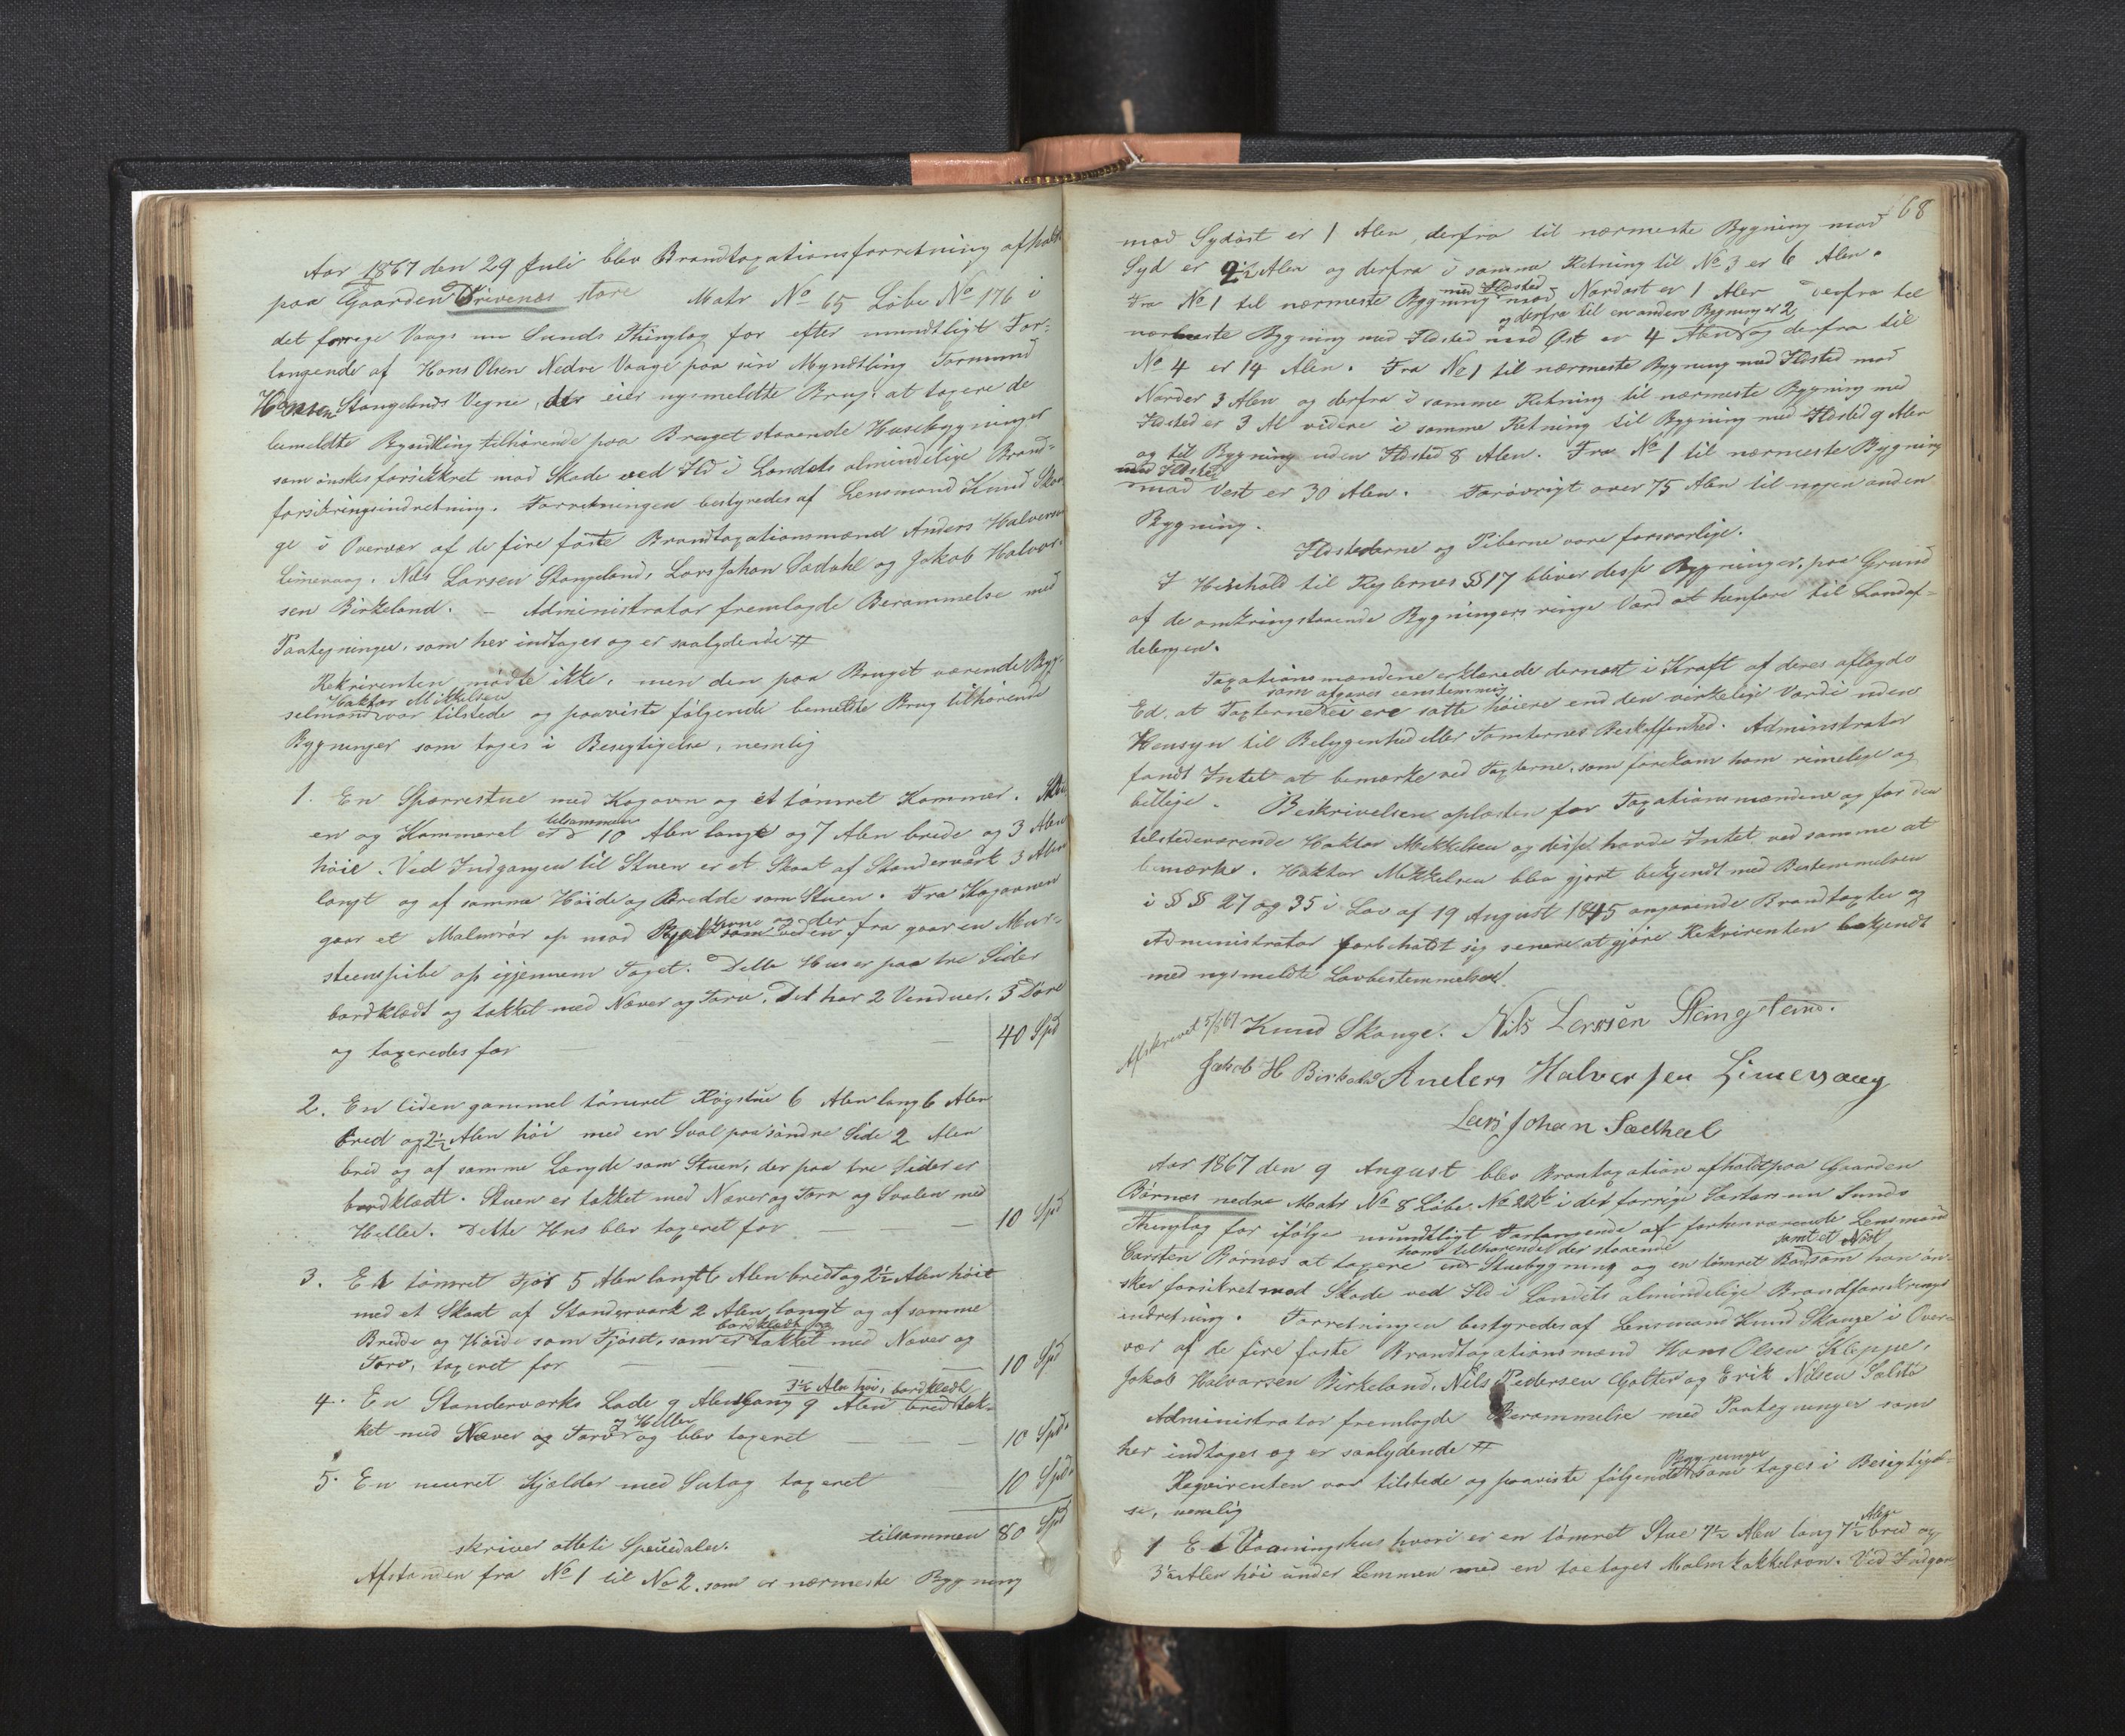 Aar 1867 den 29 Juli blev Brandtaxationsforretning afholdt
paa Gaarden Drivenes store Matr No 65 Løbe No 176 i
det forrige Vaags nu Sunds Thinglag for efter mundtligt For-
langende af Hans Olsen Nedre Vaage paa sin Myndtling Tormund
Hansen Stangelands Vegne, der eier nysmeldte Brug, at taxere de
bemeldte Myndtling tilhørende paa Bruget staaende Husebygninger
som ønskes forsikkret mod Skade ved Ild i Landets almindelige Brand-
forsikringsindretning. Forretningen bestyredes af Lensmand Knud Skau-
ge i Overvær af de fire faste Brandtaxationsmænd Anders Halversen
Limevaag, Nils Larsen Stangeland, Lars Johan Sædahl og Jakob Halvor-
sen Birkeland. - Administrator fremlagde Berammelse med
Paategninger, som her indtages og er saalydende #
Rekvirenten mødte ikke, men den paa Bruget værende Byg-
selmand Haktor Mikkelsen var tilstede og paaviste følgende bemeldte Brug tilhørende
Bygninger som toges i Besigtigelse, nemlig
1. En Sperrestue med Kogovn og et tømret Kammer. Stu-
en og Kammeret er tilsammen 10 Alen lange og 7 Alen brede og 3 Alen
høie. Ved Indgangen til Stuen er et Skaat af Standerværk 3 Alen
langt og af samme Høide og Bredde som Stuen. Fra Kogovnen
gaar et Malmrør op mod Bjelkerne og der fra gaar en Mur-
steenspibe op igjennem Taget. Dette Hus er paa tre Sider
bordklædt og takket med Næver og Torv. Det har 2 Venduer, 3 Døre
og taxeredes for — — 40 Spd
2. En liden gammel tømret Røgstue 6 Alen lang 6 Alen
bred og 2½ Alen høi med en Sval paa søndre Side 2 Alen
bred og af samme Længde som Stuen, der paa tre Sider er
bordklædt. Stuen er takket med Næver og Torv og Svalen med
Heller. Dette Hus blev taxeret for — — 10 Spd
3. Et tømret Fjøs 5 Alen langt 6 Alen bredt og 2½ Alen høit
med et Skaat af Standerværk 2 Alen langt og af samme
Bredde og Høide som Fjøset, som er bordklædt og takket med Næver og
Torv, taxeret for — — — 10 Spd
4. En Standerværks Lade 9 Alen lang 9 Alen bred 3½ Alen høi, bordklædt, tak-
ket med Næver og Torv og Heller og blev taxeret — — — 10 Spd.
5. En muret Kjælder med Sutag taxeret 10 Spd.
tilsammen 80 Spd
skriver otteti Speciedaler.
Afstanden fra No 1 til No 2, som er nærmeste Bygning
68
mod Sydost er 1 Alen, derfra til nærmeste Bygning mod
Syd er 2½ Alen og derfra i samme Retning til No 3 er 6 Alen.
Fra No 1 til nærmeste Bygning med Ildsted mod Nordost er 1 Alen derfra til
nærmeste Bygning med Ildsted mod Øst er 4 Alen og derfra til en anden Bygning er 2 og derfra til
No 4 er 14 Alen. Fra No 1 til nærmeste Bygning med Ildsted mod
Norden 3 Alen og derfra i samme Retning til nærmeste Bygning med
Ildsted er 3 Al videre i samme Retning til Bygning med Ildsted 9 Alen
og til Bygning uden Ildsted 8 Alen. Fra No 1 til nærmeste Bygning
med Ildsted mod Vest er 30 Alen. Forøvrigt over 75 Alen til nogen anden
Bygning.
Ildstederne og Piberne vare forsvarlige.
I Henhold til Reglernes §§ 17 bliver disse Bygninger, paa Grund
af de omkringstaaende Bygningers ringe Værd at henføre til Landaf-
delingen.
Taxationsmændene erklærede dernæst i Kraft af deres aflagde
Ed, at Taxterne som afgaves eenstemmig ei ere satte høiere end den virkelige Værdi uden
Hensyn til Belligenhed eller Tomternes Beskaffenhed. Adminstrator
fandt Intet at bemærke ved Taxterne, som forekom ham rimelige og
billige. Beskrivelsen oplæstes for Taxationsmændene og for den
tilstedeværende Haktor Mikkelsen og disse havde Intet ved samme at
bemærke. Haktor Mikkelsen blev gjort bekjendt med Bestemmelsen
i §§ 27 og 35 i Lov af 19 August 1845 angaaende Brandtaxter og
Administrator forbeholdt sig senere at gjøre Rekvirenten bekjendt
med nysmeldte Lovbestemmelser.
Afskrevet 5/8 67 Knud Skauge. Nils Larsen Stangeland.
Jakob H Birkeland Anders Halversen Limevaag
Lars Johan Sædhal
Aar 1867 den 9 August blev Brantaxation afholdt paa Gaarden
Børnæs nedre Matr No 8 Løbe No 22b i det forrige Sartors nu Sunds
Thinglag for ifølge mundtligt Forlangende af forhenværende Lensmand
Carsten Børnæs at taxere ham tilhørende der staaende Stuebygning og en tømret Bod samt et Nøst som han øn-
sker forsikret mod Skade ved Ild i Landets almindelige Brandforsikrings
indretning. Forretningen bestyredes af Lensmand Knud Skauge i Over-
vær af de fire faste Brandtaxationsmænd Hans Olsen Kleppe,
Jakob Halvorsen Birkeland, Nils Pedersen Golten og Erik Nilsen Solstø
Administrator fremlagde Berammelse med Paategninger som
her indtages og er saalydende #
Reqvirenten var tilstede og paaviste følgende Bygninger som toges i Besigtigel-
se, nemlig
1 Et Vaaningshus hvori er en tømret Stue 7½ Alen lang 7½ Alen bred og
3½ Alen høi under Lemmen med en toetages Malmkakkelovn. Ved Indgan-